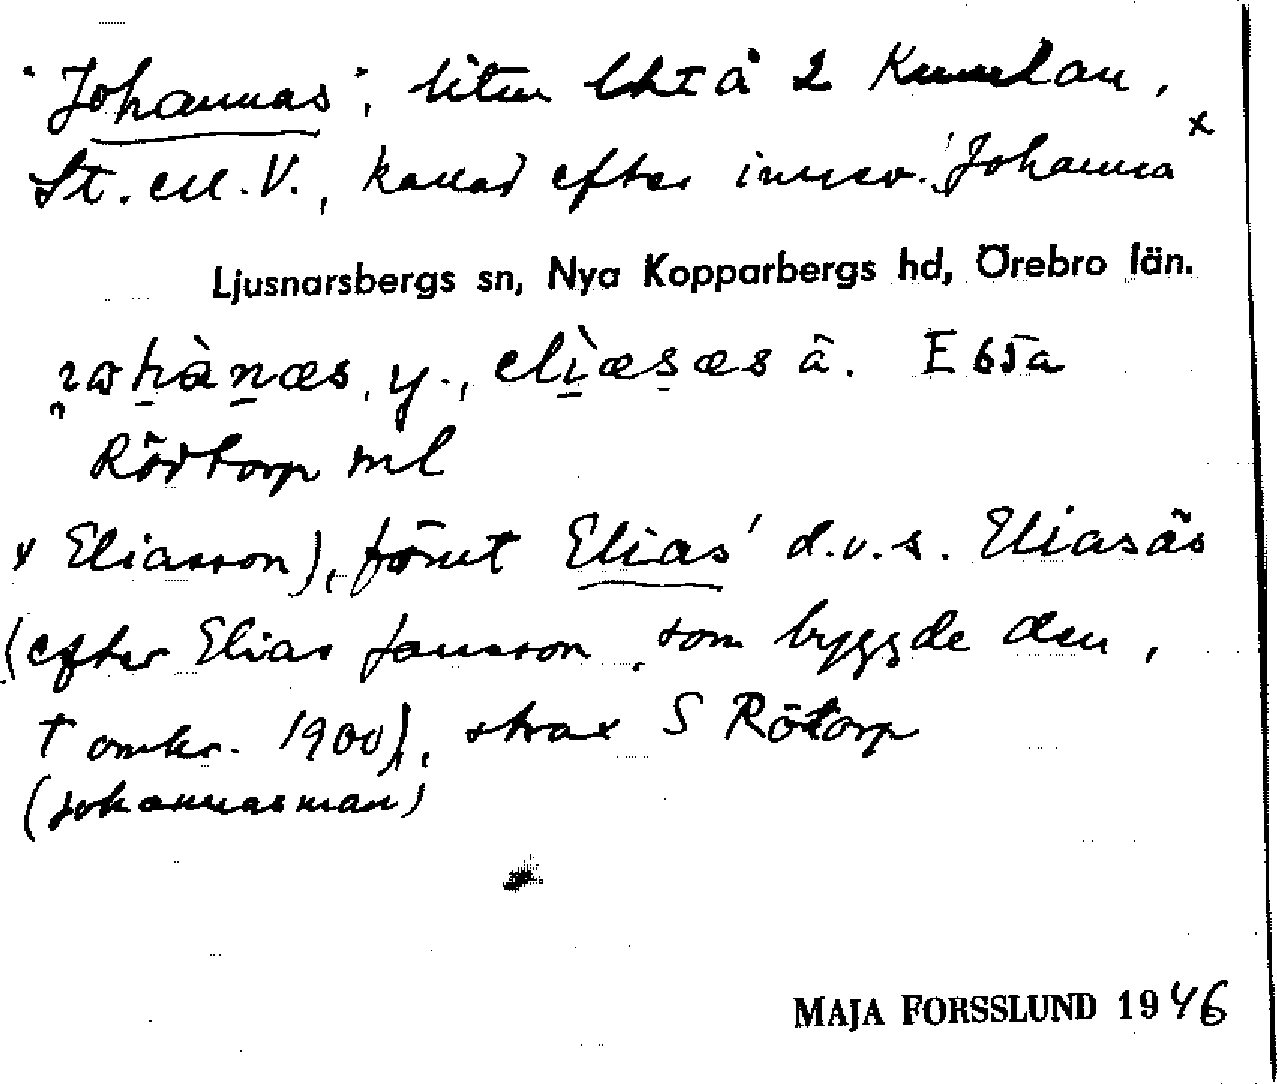 'Johannas', liten lht å 2 Kumlan,
St. ell. V., kallad efter innev. 'Johanna x
Ljusnarsbergs sn, Nya Kopparbergs hd, Örebro län.
y., elìæsæs ä. E 65a
Rödtorp ml
x Eliasson), förut Elias' d.v.s. Eliasäs
(efter Elias Jansson, som byggde den,
† omkr. 1900), strax S Rötorp
(Johannasman)
MAJA FORSSLUND 1946